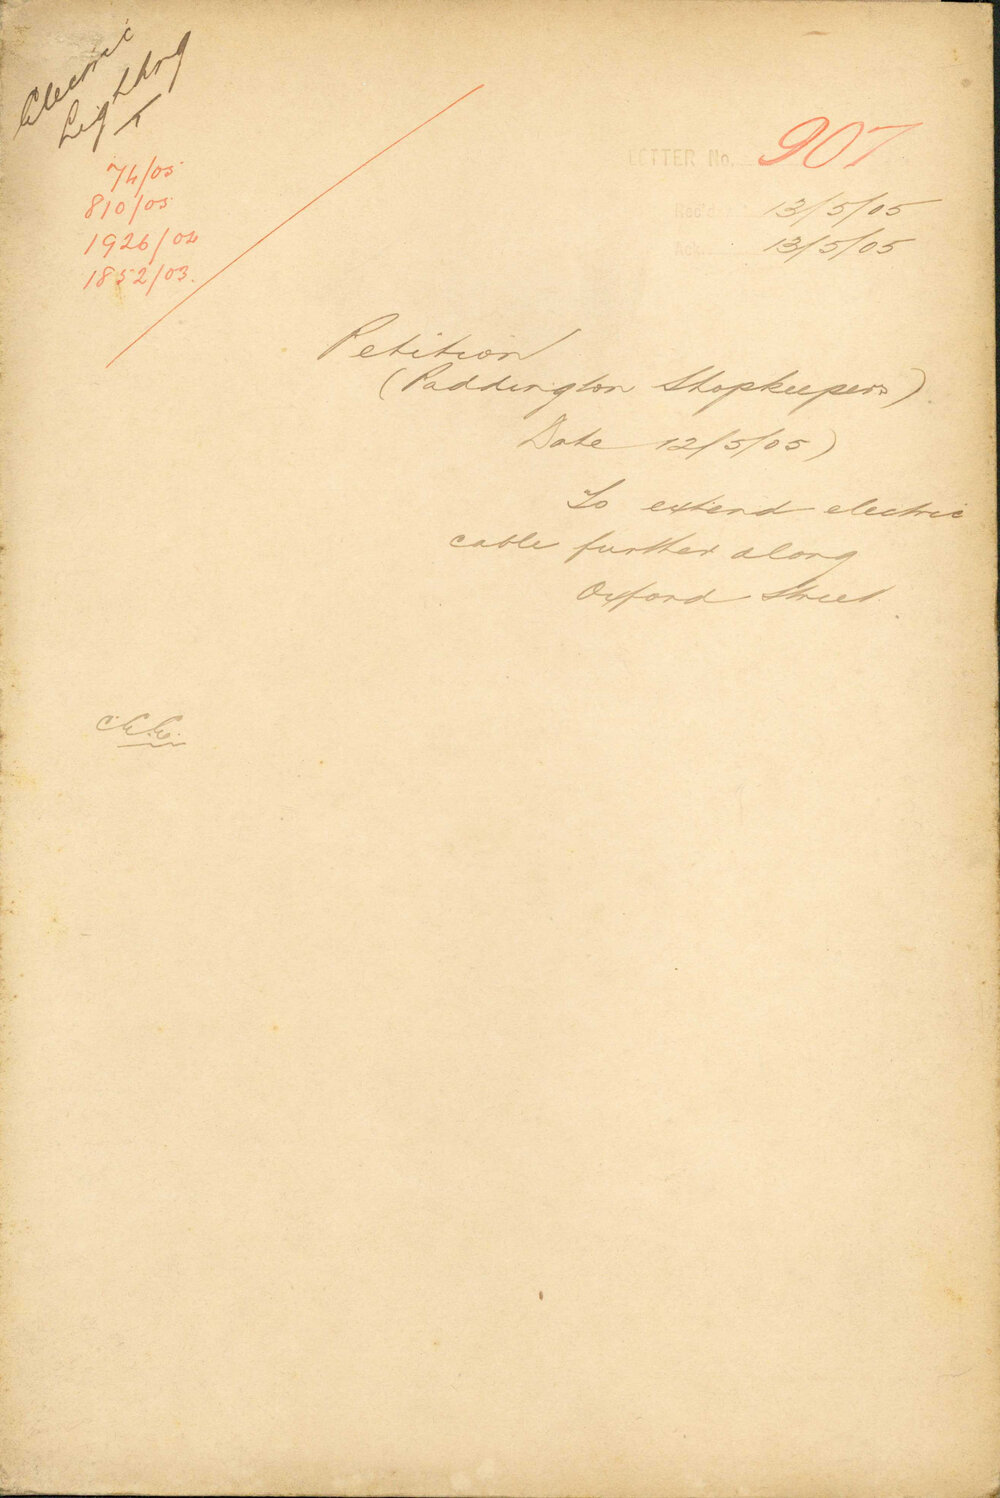 Electric
Lighting
74/05
810/05
1926/04
1852/03.
LETTER No. 907
Rec'd 13/5/05
Ack 13/5/05
Petition
(Paddington Shopkeepers)
Date 12/5/05)
To extend electric
cable further along
Oxford Street.